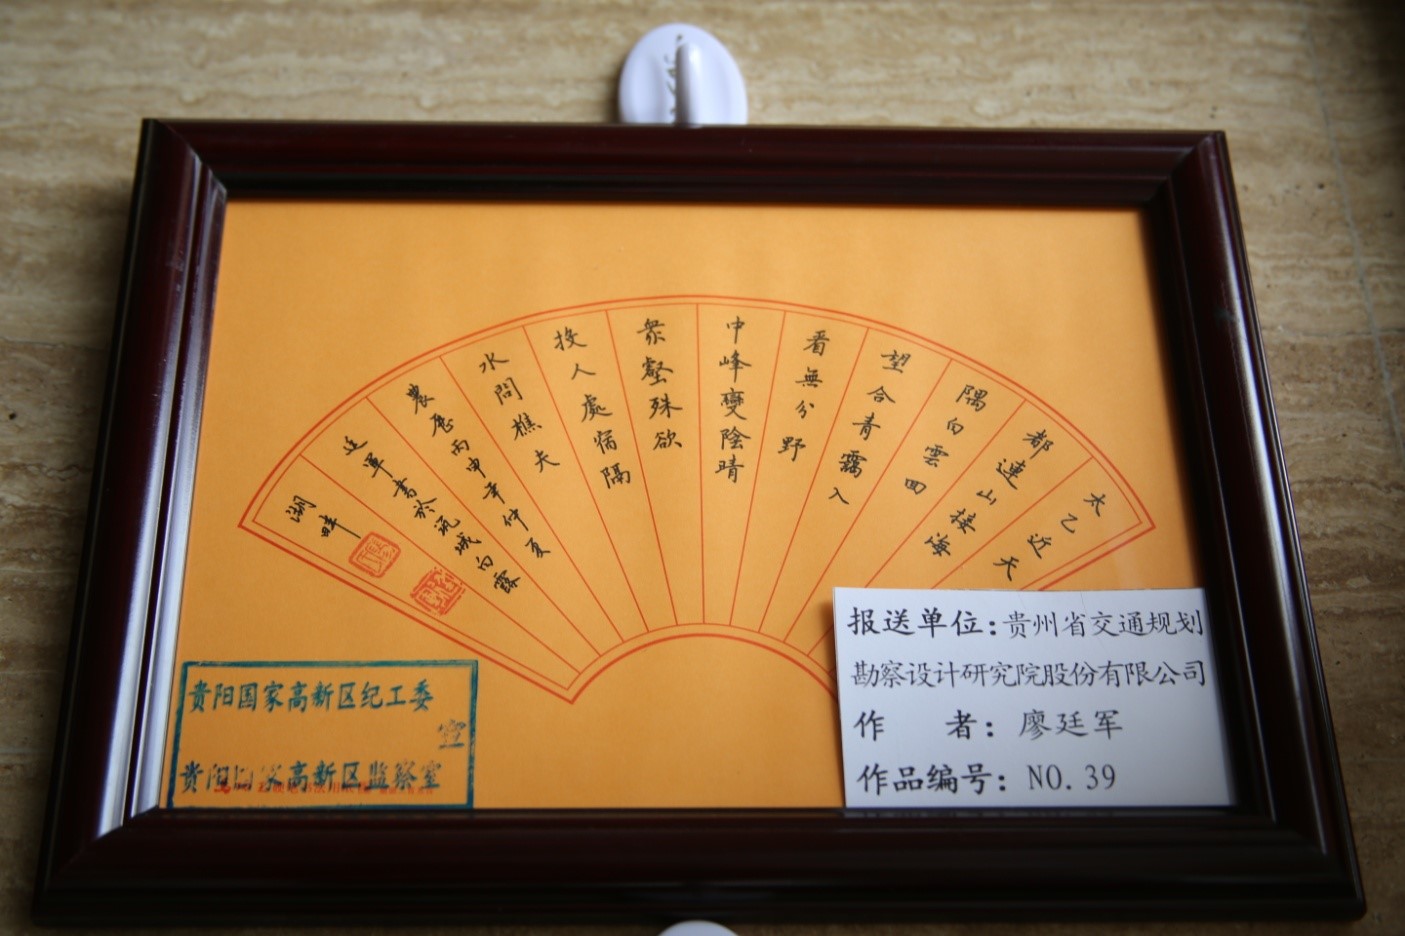 太乙近天
都連山接海
隅白雲回
望合青靄入
看無分野
中峰變陰晴
衆壑殊欲
投人處宿隔
水問樵夫
農歷丙申年仲夏
廷軍書於筑城白露
湖畔
报送单位:贵州省交通规划
勘察设计研究院股份有限公司
作 者:廖廷军
作品编号:NO.39
贵阳国家高新区纪工委
贵阳国家高新区监察室